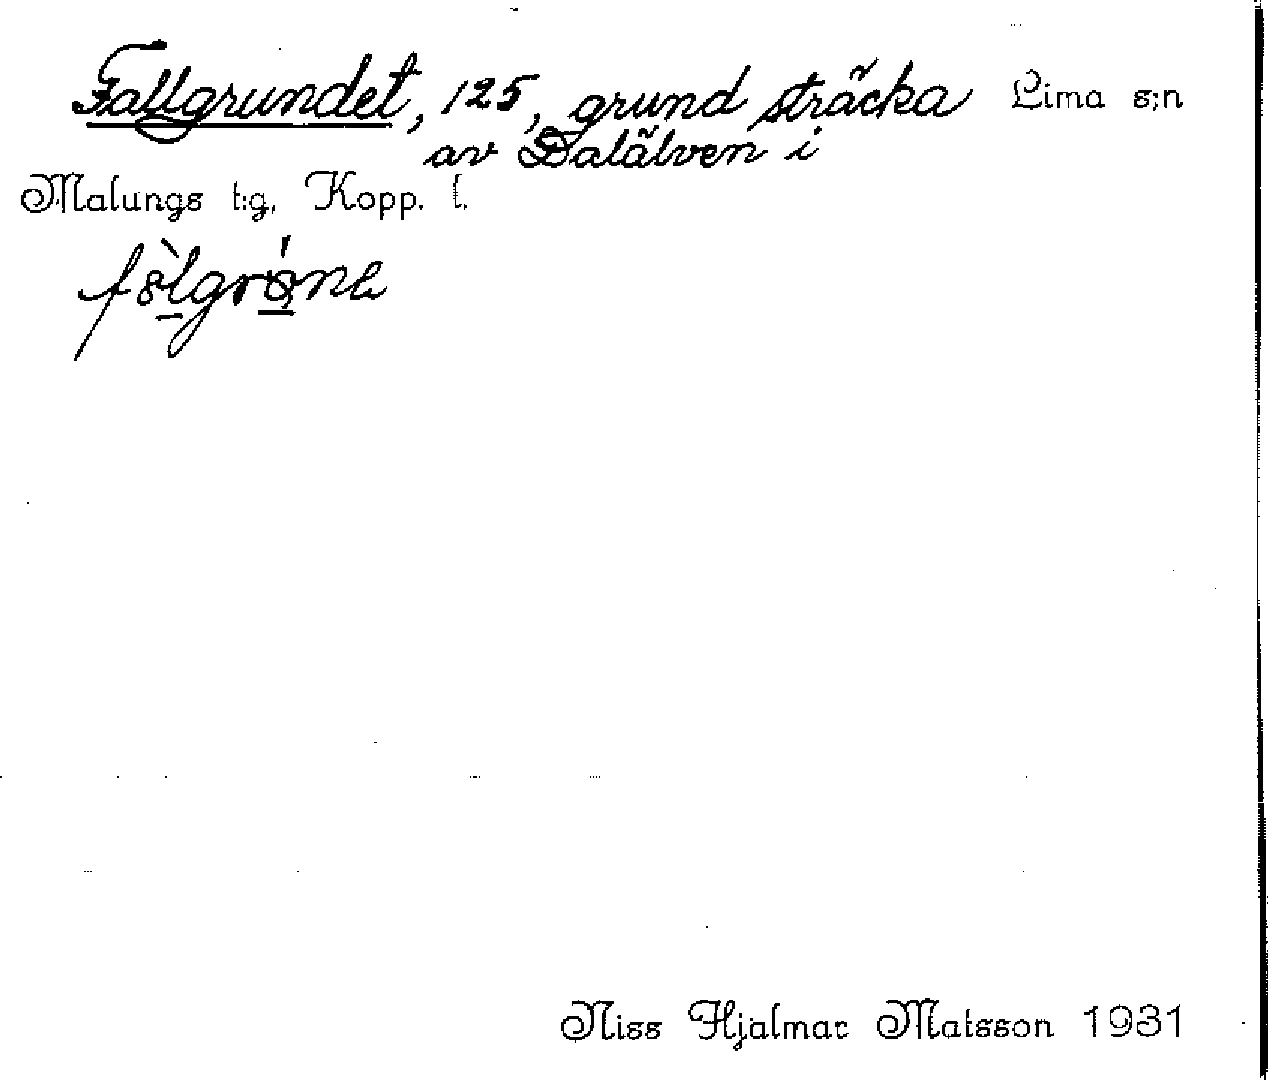 Fallgrundet, 125, grund sträcka Lima s:n
av Dalälven i
Malungs t:g, Kopp. l.
Niss Hjalmar Matsson 1931